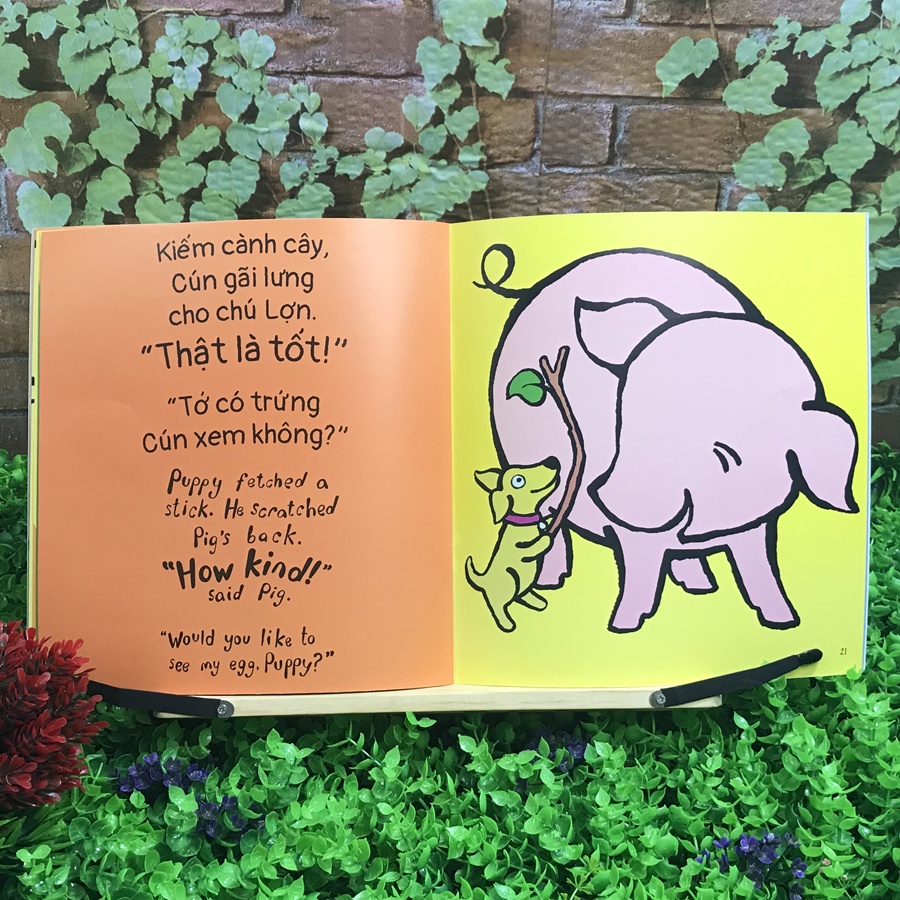 Kiếm cành cây,
Cún gãi lưng
cho chú Lợn.
“Thật là tốt!”
“Tớ có trứng
Cún xem không?”
Puppy fetched a
stick. He scratched
Pig's back.
“How kind!”
said Pig.
“Would you like to
see my egg, Puppy?”
21